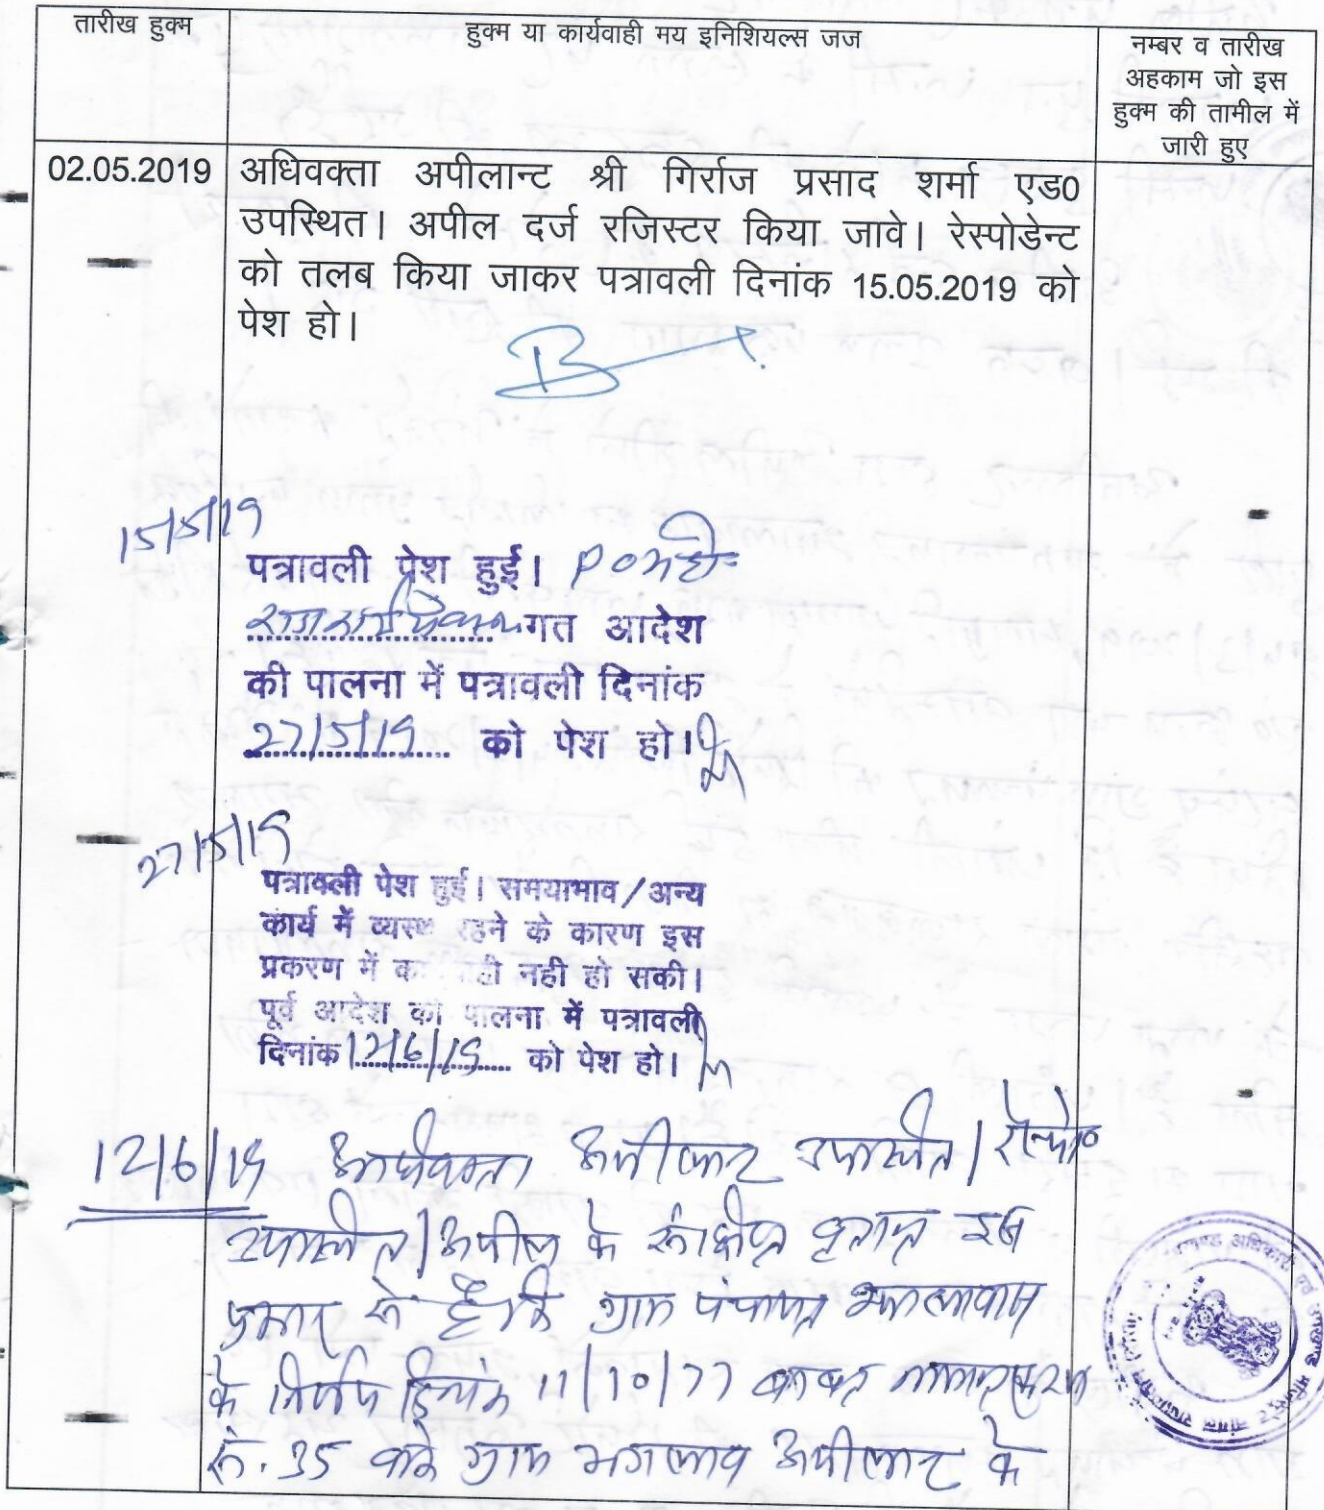 तारीख हुक्म
हुक्म या कार्यवाही मय इनिशियल्स जज
नम्बर व तारीख
अहकाम जो इस
हुक्म की तामील में
जारी हुए
02.05.2019
अधिवक्ता अपीलान्ट श्री गिर्राज प्रसाद शर्मा एड0
उपस्थित। अपील दर्ज रजिस्टर किया जावे। रेस्पोडेन्ट
को तलब किया जाकर पत्रावली दिनांक 15.05.2019 को
पेश हो।
15/5/19
पत्रावली प्रेश हुई।
गत आदेश
की पालना में पत्रावली दिनांक
27/5/19 को पेश हो।
27/5/19
पत्रावली पेश हुई। समयाभाव/अन्य
कार्य में व्यस्त रहने के कारण इस
प्रकरण में का ही नही हो सकी।
पूर्व आदेश की पालना में पत्रावली
दिनांक 12/6/19 को पेश हो।
12/6/19 अधिवक्ता अपीलांट उपस्थित। रेस्पो०
उपस्थित। अपील के संक्षिप्त वृतान्त इस
प्रकार से है कि ग्राम पंचायत
के निर्णय दिनांक 11/10/77 बाबत नामान्तकरण
सं. 35 वाके ग्राम अपीलांट के